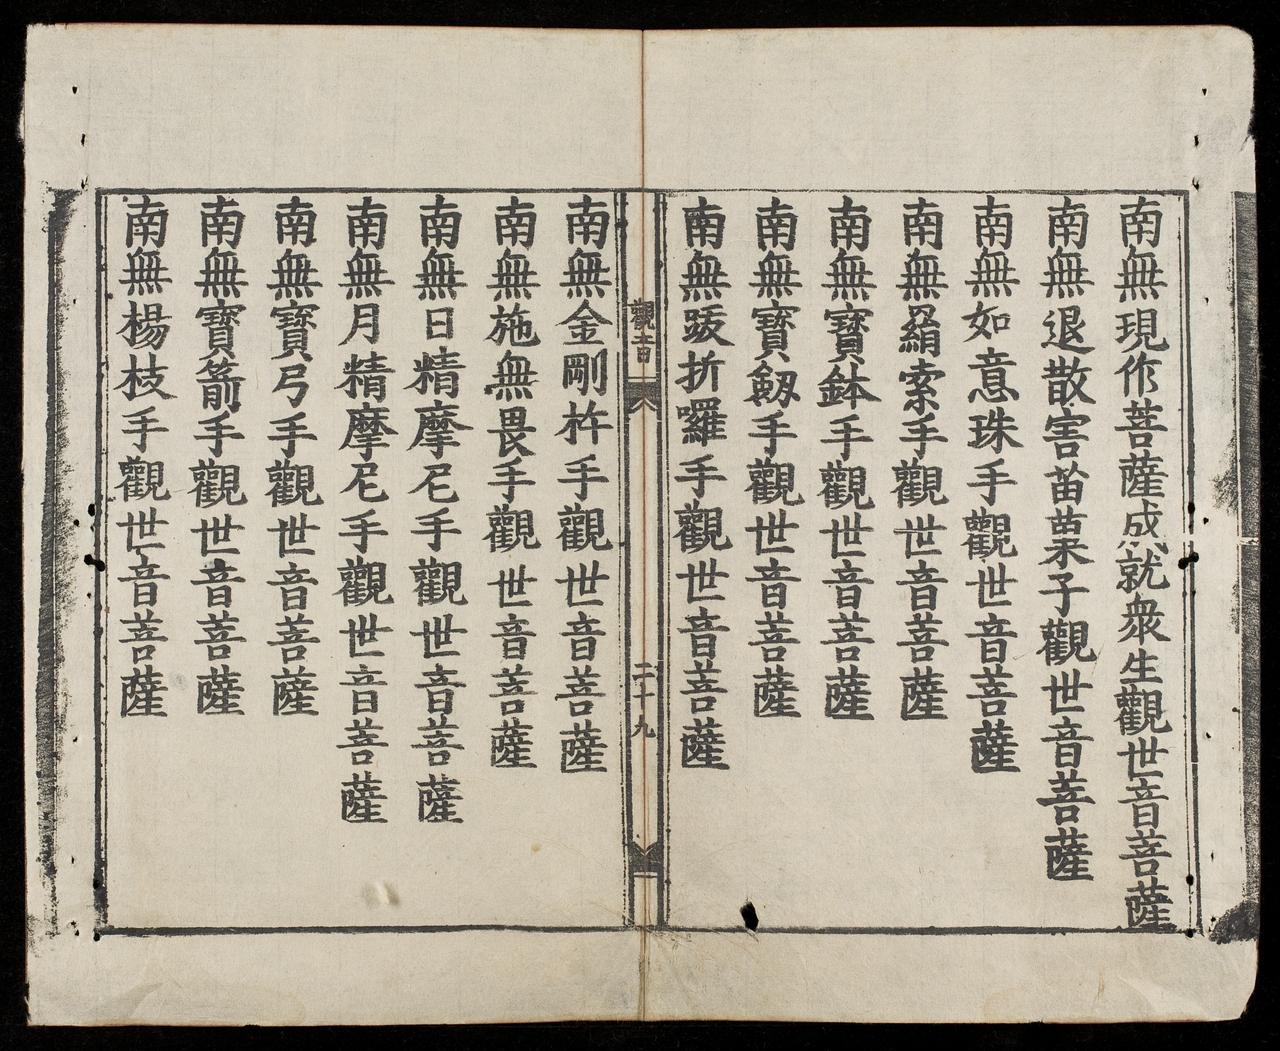 南無現作菩薩成就衆生觀世音菩薩
南無退散害苗菓子觀世音菩薩
南無如意珠手觀世音菩薩
南無羂索手觀世音菩薩
南無寶鉢手觀世音菩薩
南無寶劔手觀世音菩薩
南無跋折囉手觀世音菩薩
觀音
二十九
南無金剛杵手觀世音菩薩
南無施無畏手觀世音菩薩
南無日精摩尼手觀世音菩薩
南無月精摩尼手觀世音菩薩
南無寶弓手觀世音菩薩
南無寶箭手觀世音菩薩
南無楊枝手觀世音菩薩